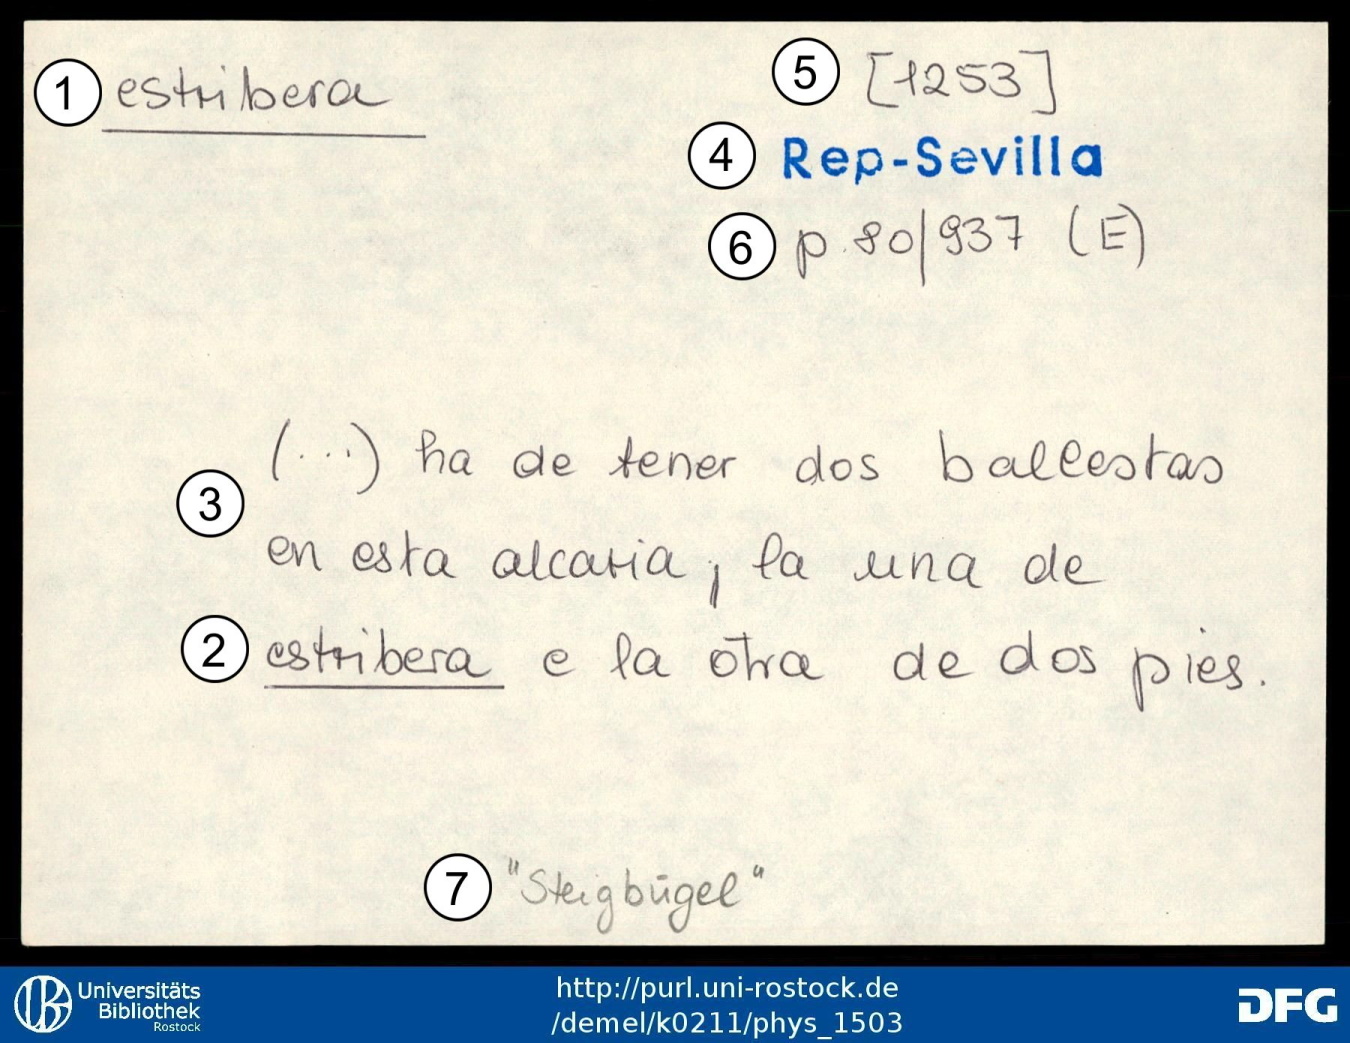 1 estribera
5 [1253]
4 Rep-Sevilla
6 p. 80/937 (E)
(...) ha de tener dos ballestas
3
en esta alcaria, la una de
2 estribera e la otra de dos pies.
7 "Steigbügel"
Universitäts
Bibliothek
Rostock
http://purl.uni-rostock.de
/demel/k0211/phys_1503
DFG